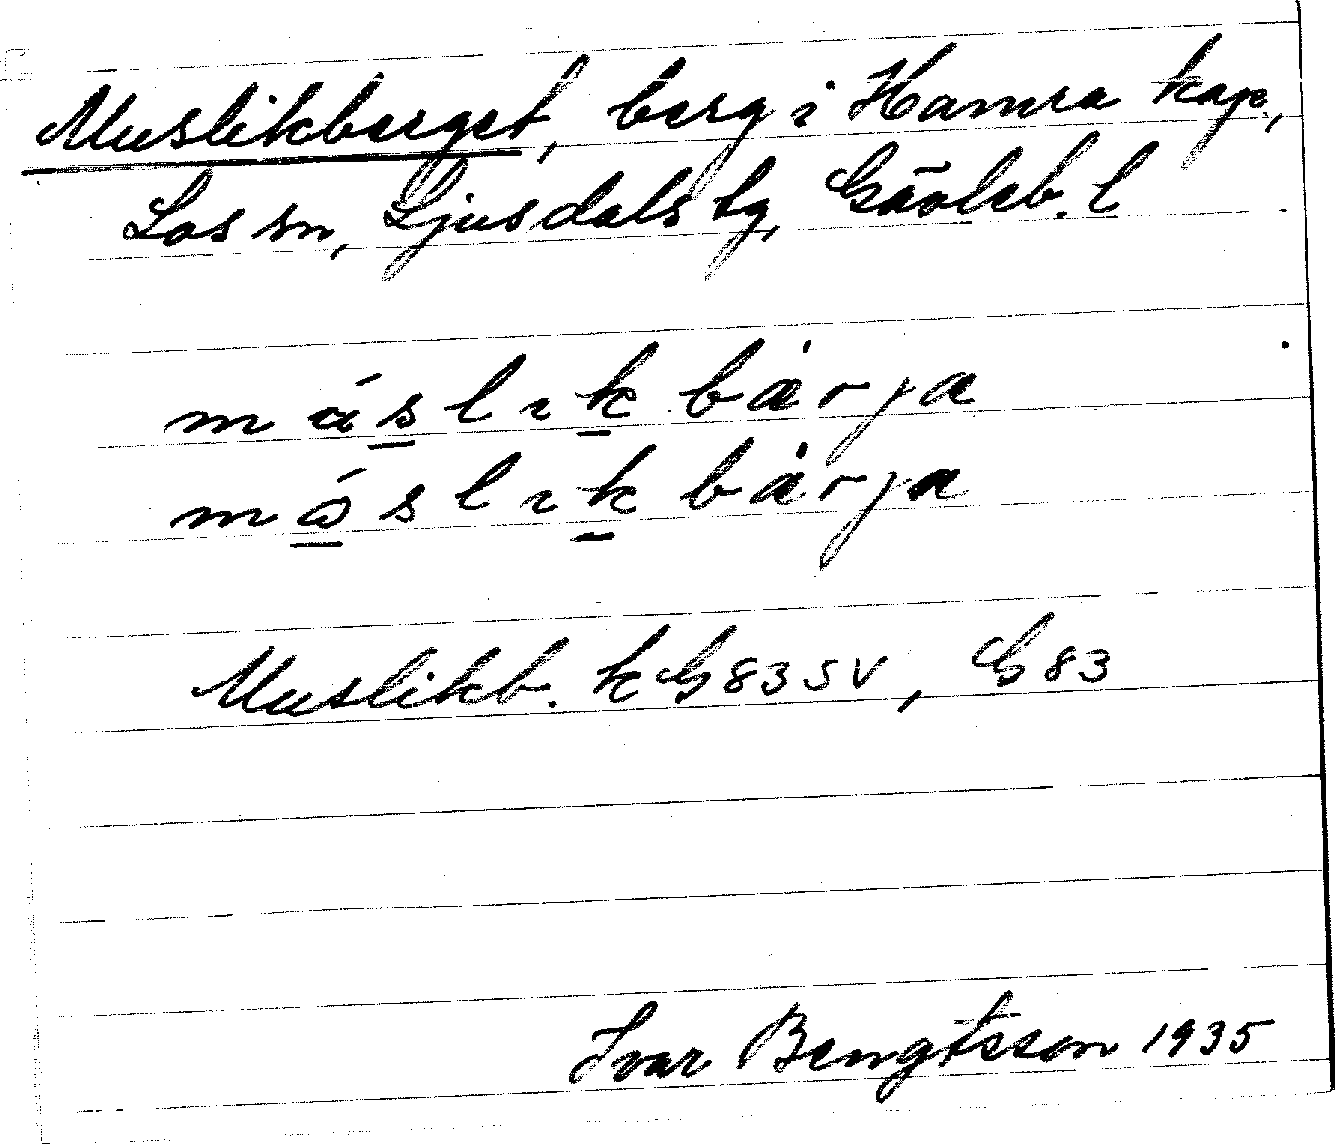 Muslikberget, berg i Hamra kape,
Los sn, Ljusdals tg, Gävleb. l
máslikbàrja
móslikbàrja
Muslikb. k G83SV, G83
Ivar Bengtsson 1935